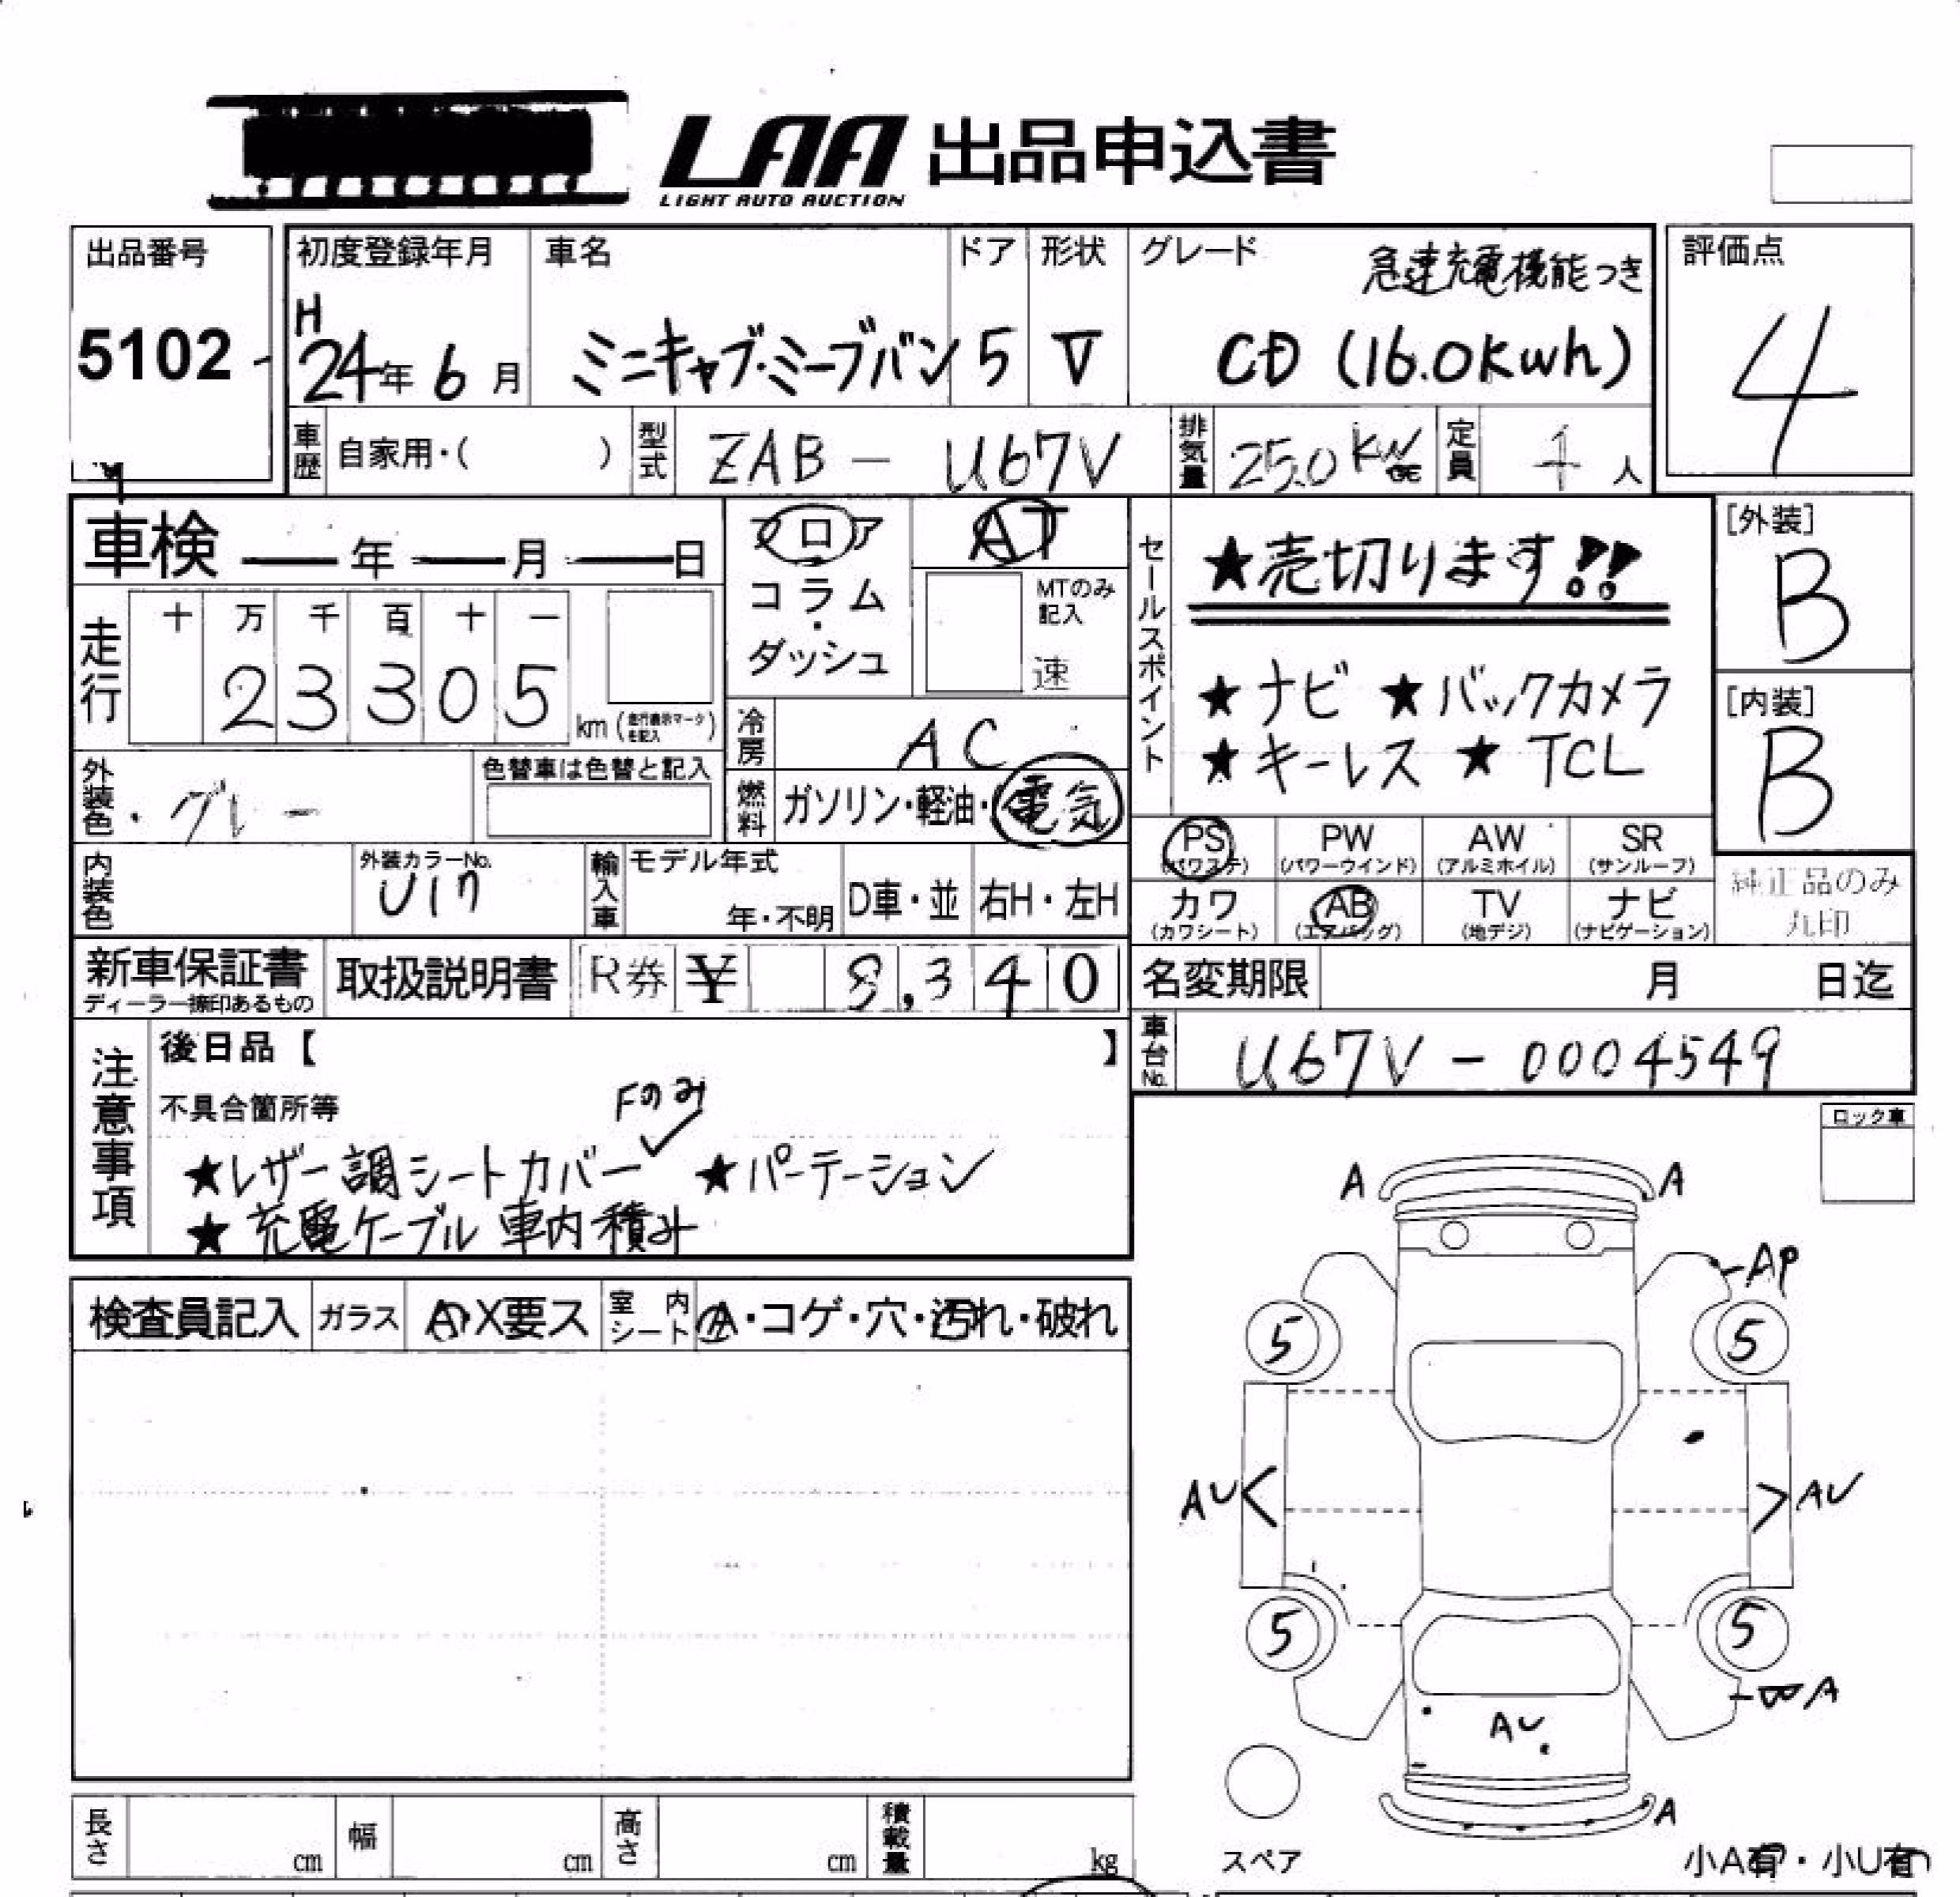 LAA 出品申込書
LIGHT AUTO AUCTION
出品番号
5102
初度登録年月
H
24年 6月
車名
ミニキャブ・ミーブバン
ドア
5
形状
V
グレード
急速充電機能つき
CD (16.0Kwh)
評価点
4
車歴 自家用・( )
型式 ZAB - U67V
排気量 25.0 KW
定員 人
車検 年 月 日
走行 十 万 千 百 十 一
2 3 3 0 5
km (走行表示マークを記入)
フロア
コラム
・
ダッシュ
AT
MTのみ記入
速
冷房 AC
燃料 ガソリン・軽油・電気
外装色 グレー
色替車は色替と記入
内装色
外装カラーNo.
U17
輸入車 モデル年式
年・不明
D車・並
右H・左H
セールスポイント
★売切ります!!
★ナビ ★バックカメラ
★キーレス ★TCL
[外装]
B
[内装]
B
PS
(パワステ)
PW
(パワーウインド)
AW
(アルミホイル)
SR
(サンルーフ)
カワ
(カワシート)
AB
(エアバッグ)
TV
(地デジ)
ナビ
(ナビゲーション)
純正品のみ
丸印
新車保証書
ディーラー捺印あるもの
取扱説明書
R券 ¥ 8,340
名変期限 月 日迄
車台No. U67V - 0004549
注意事項
後日品【 】
不具合箇所等
Fのみ
★レザー調シートカバー ★パーテーション
★充電ケーブル車内積み
検査員記入
ガラス A・X要ス
室内シート A・コゲ・穴・汚れ・破れ
ロック車
A
A
AP
5
5
AU
AU
5
5
A
AU
A
スペア
小A有・小U有
長さ cm
幅 cm
高さ cm
積載量 kg